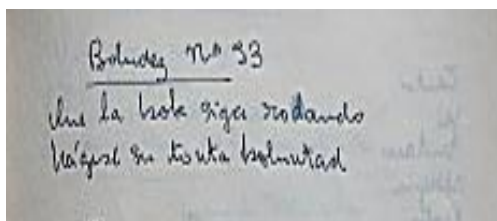 Boludez nº 93
Que la bola siga rodando
hágase su tonta voluntad